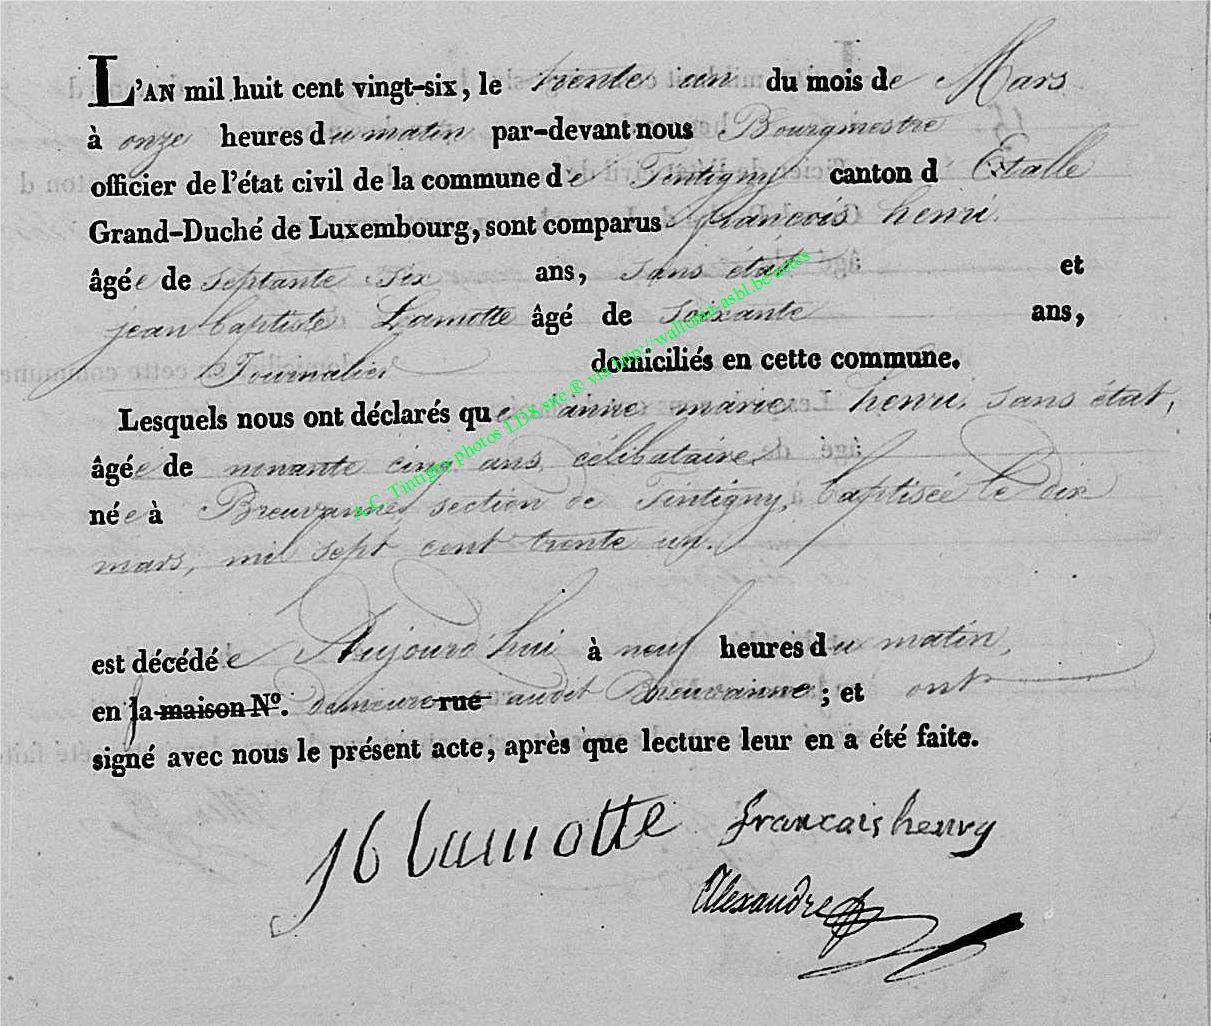 L'AN mil huit cent vingt-six, le trente un du mois de Mars
à onze heures du matin par-devant nous Bourgmestre
officier de l'état civil de la commune de Tintigny canton d Etalle
Grand-Duché de Luxembourg, sont comparus françois henri
âgée de septante six ans, sans état et
jean baptiste Lamotte âgé de soixante ans,
Journalier domiciliés en cette commune.
Lesquels nous ont déclarés que anne marie henri, sans état,
âgée de nonante cinq ans, célibataire,
née à Breuvanne, section de Tintigny, baptisée le dix
mars, mil sept cent trente un.
est décédée Aujourd'hui à neuf heures du matin,
en sa maison N°. demeure rue audit Breuvanne ; et ont
signé avec nous le présent acte, après que lecture leur en a été faite.
JB Lamotte francais henry
Alexandre
A.C. Tintigny photos LDS site ® via http://wallonia-asbl.be/actes